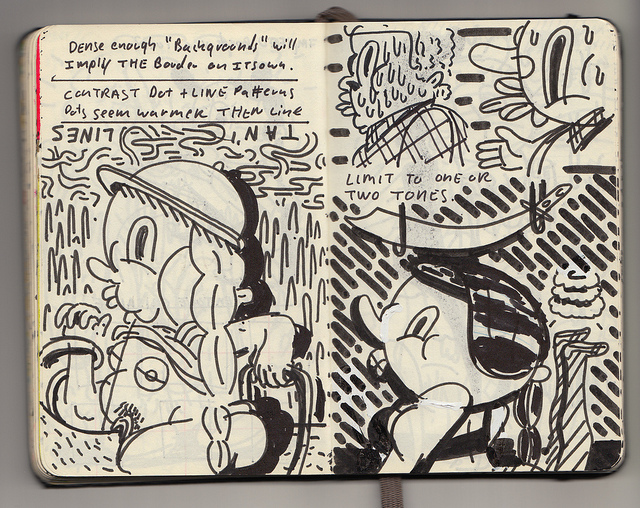 Dense enough "Backgrounds" will
Imply THE Border on ITS own.
CONTRAST Dot + LINE Patterns
Dots seem warmer THEN Line
TAN LINES
LIMIT TO ONE OR
TWO TONES.